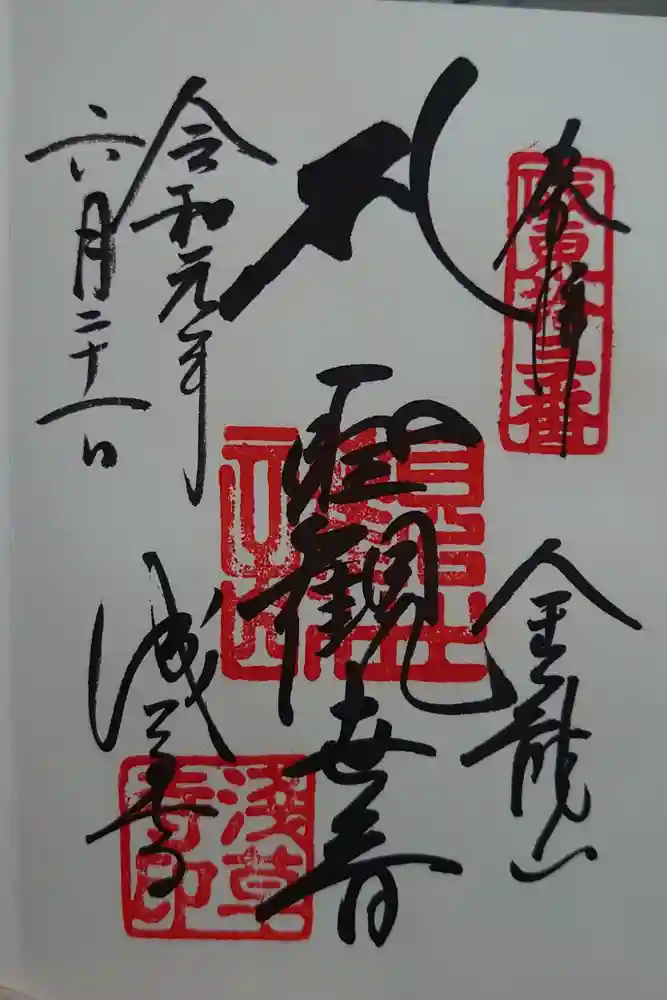 奉拝
坂東拾三番
金龍山
聖観世音
令和元年
六月二十一日
浅草寺
浅草寺印